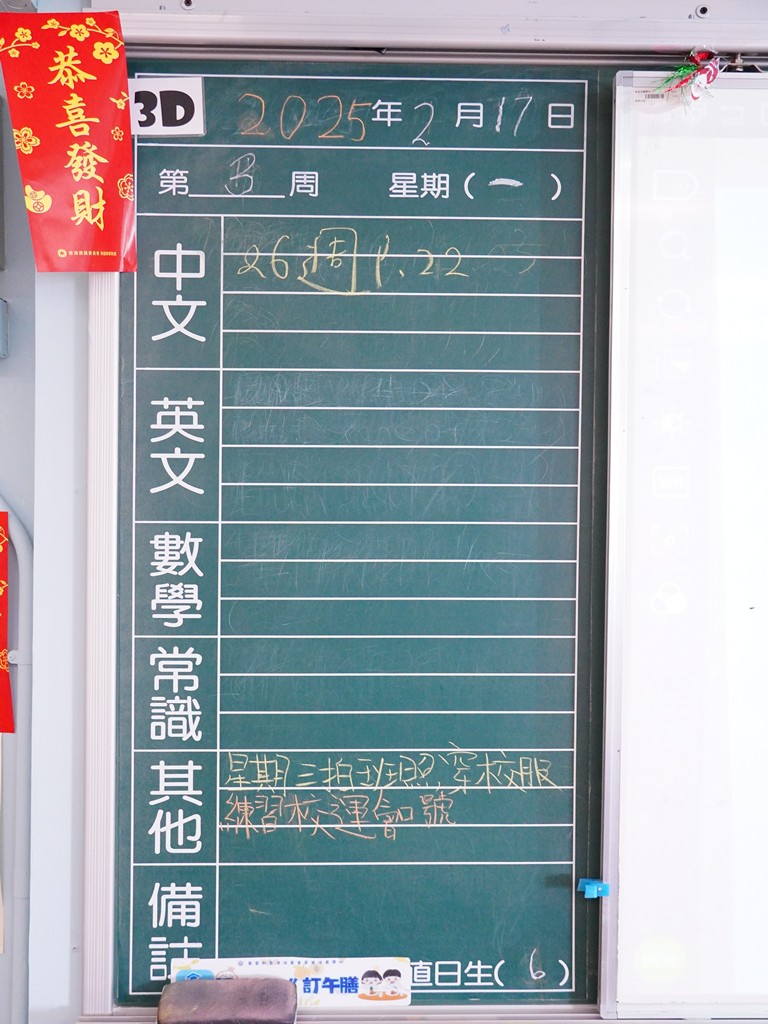 恭喜發財
3D 2025年2月17日
第___周 星期(一)
中文
26週 P.22
英文
數學
常識
其他
星期三拍班照穿校服
練習校運會口號
備註
訂午膳
值日生(6)